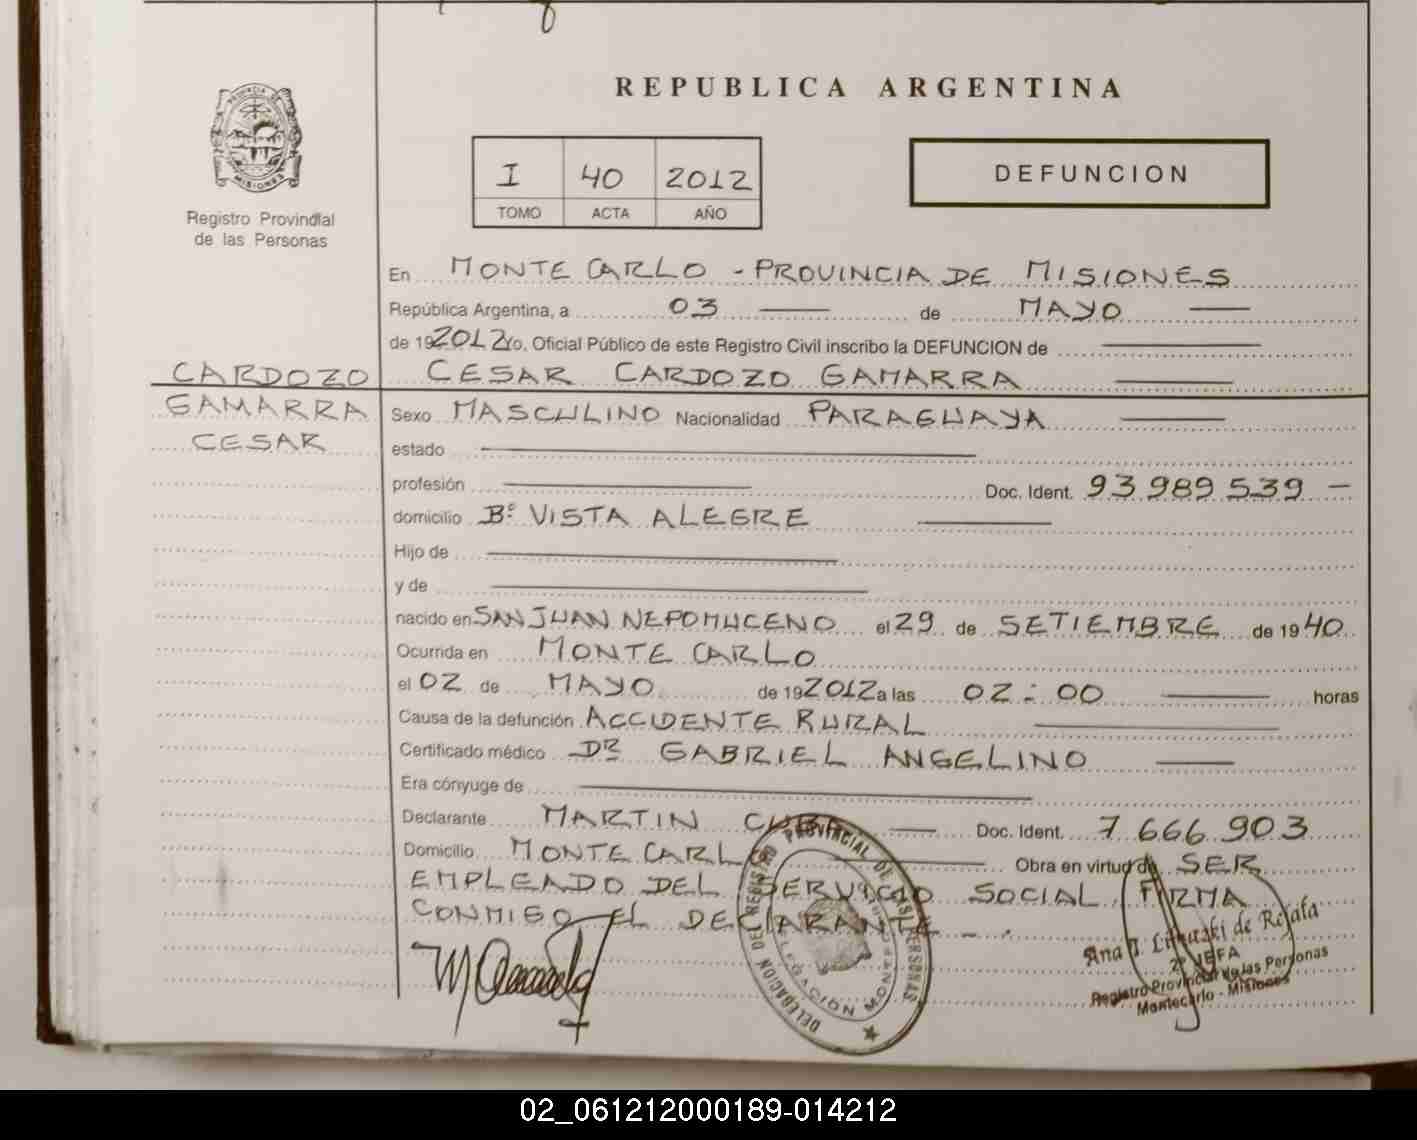 REPUBLICA ARGENTINA
PROVINCIA DE
MISIONES
Registro Provincial
de las Personas
I 40 2012
TOMO ACTA AÑO
DEFUNCION
En MONTE CARLO - PROVINCIA DE MISIONES
República Argentina, a 03 de MAYO
de 192012 Yo, Oficial Público de este Registro Civil inscribo la DEFUNCION de
CARDOZO CESAR CARDOZO GAMARRA
GAMARRA Sexo MASCULINO Nacionalidad PARAGUAYA
CESAR estado
profesión Doc. Ident. 93989539 -
domicilio Bº VISTA ALEGRE
Hijo de
y de
nacido en SAN JUAN NEPOMUCENO el 29 de SETIEMBRE de 1940
Ocurrida en MONTE CARLO
el 02 de MAYO de 192012 a las 02:00 horas
Causa de la defunción ACCIDENTE RURAL
Certificado médico DR GABRIEL ANGELINO
Era cónyuge de
Declarante MARTIN Doc. Ident. 7666903
Domicilio MONTE CARLO Obra en virtud de SER
EMPLEADO DEL SERVICIO SOCIAL FIRMA
CONMIGO EL DECLARANTE - .
DELEGACION DEL REGISTRO PROVINCIAL DE LAS PERSONAS
DELEGACIÓN MONTE
Ana de
2º JEFA
Registro Provincial de las Personas
Montecarlo - Misiones
02_061212000189-014212